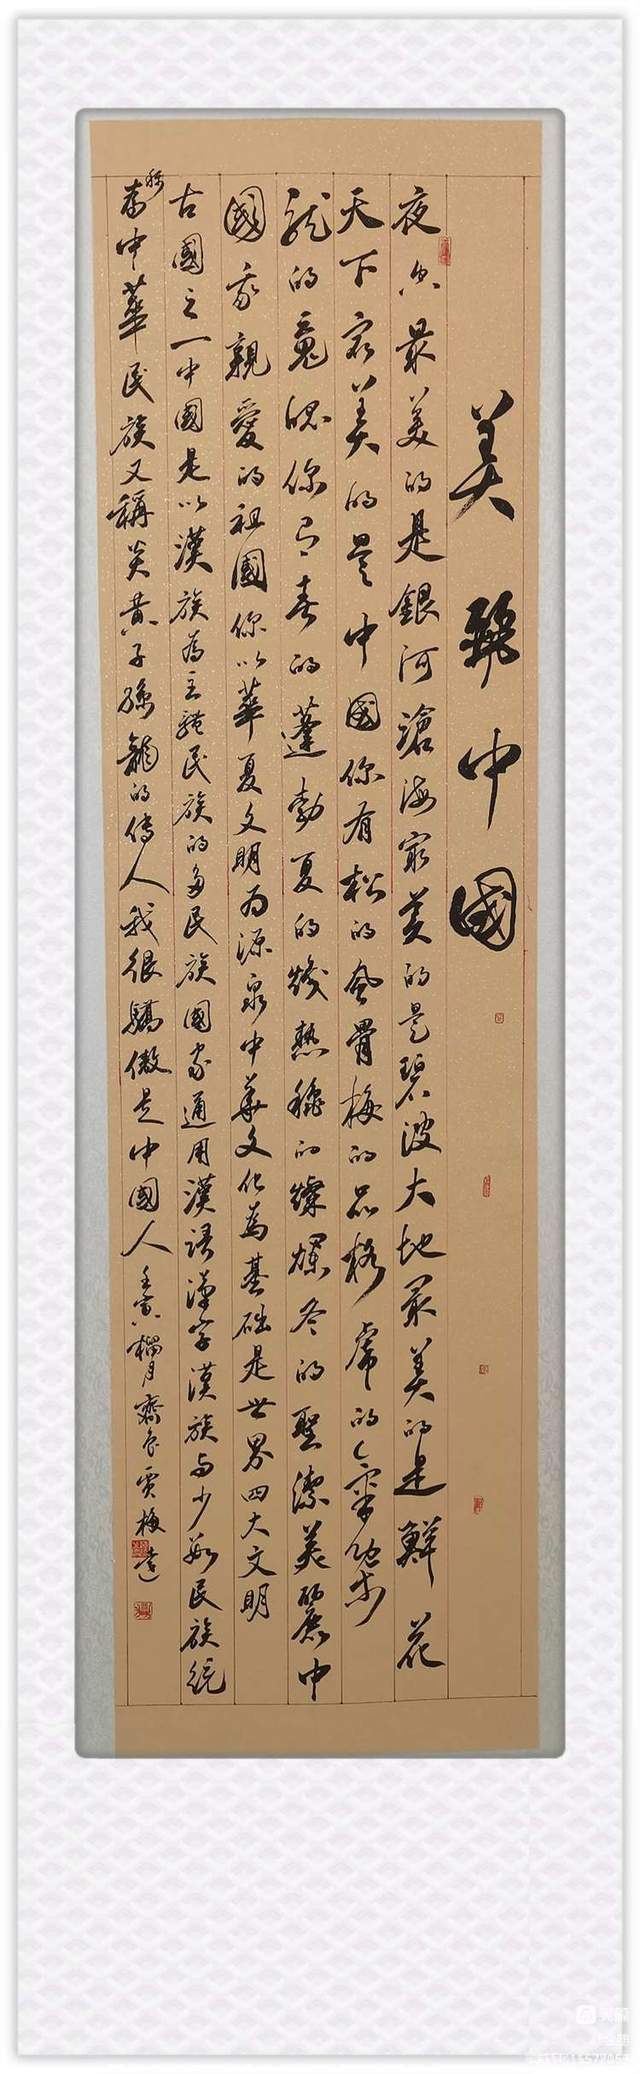 美麗中國
夜空最美的是銀河滄海最美的是碧波大地最美的是鮮花
天下最美的是中國你有松的風骨梅的品格虎的氣勢
龍的魂魄你有春的蓬勃夏的熾熱秋的燦爛冬的聖潔美麗中
國我親愛的祖國你以華夏文明為源泉中華文化為基础是世界四大文明
古國之一中國是以漢族為主體民族的多民族國家通用漢語漢字漢族与少数民族統
称為中華民族又稱炎黃子孫龍的傳人我很驕傲是中國人
壬寅榴月齊魯賈梅書